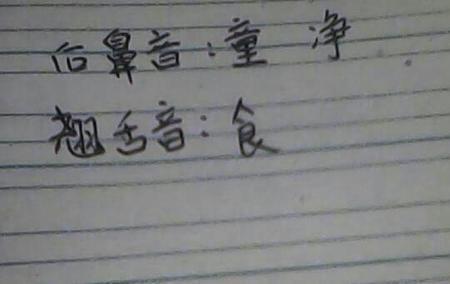 后鼻音:童 净
翘舌音:食